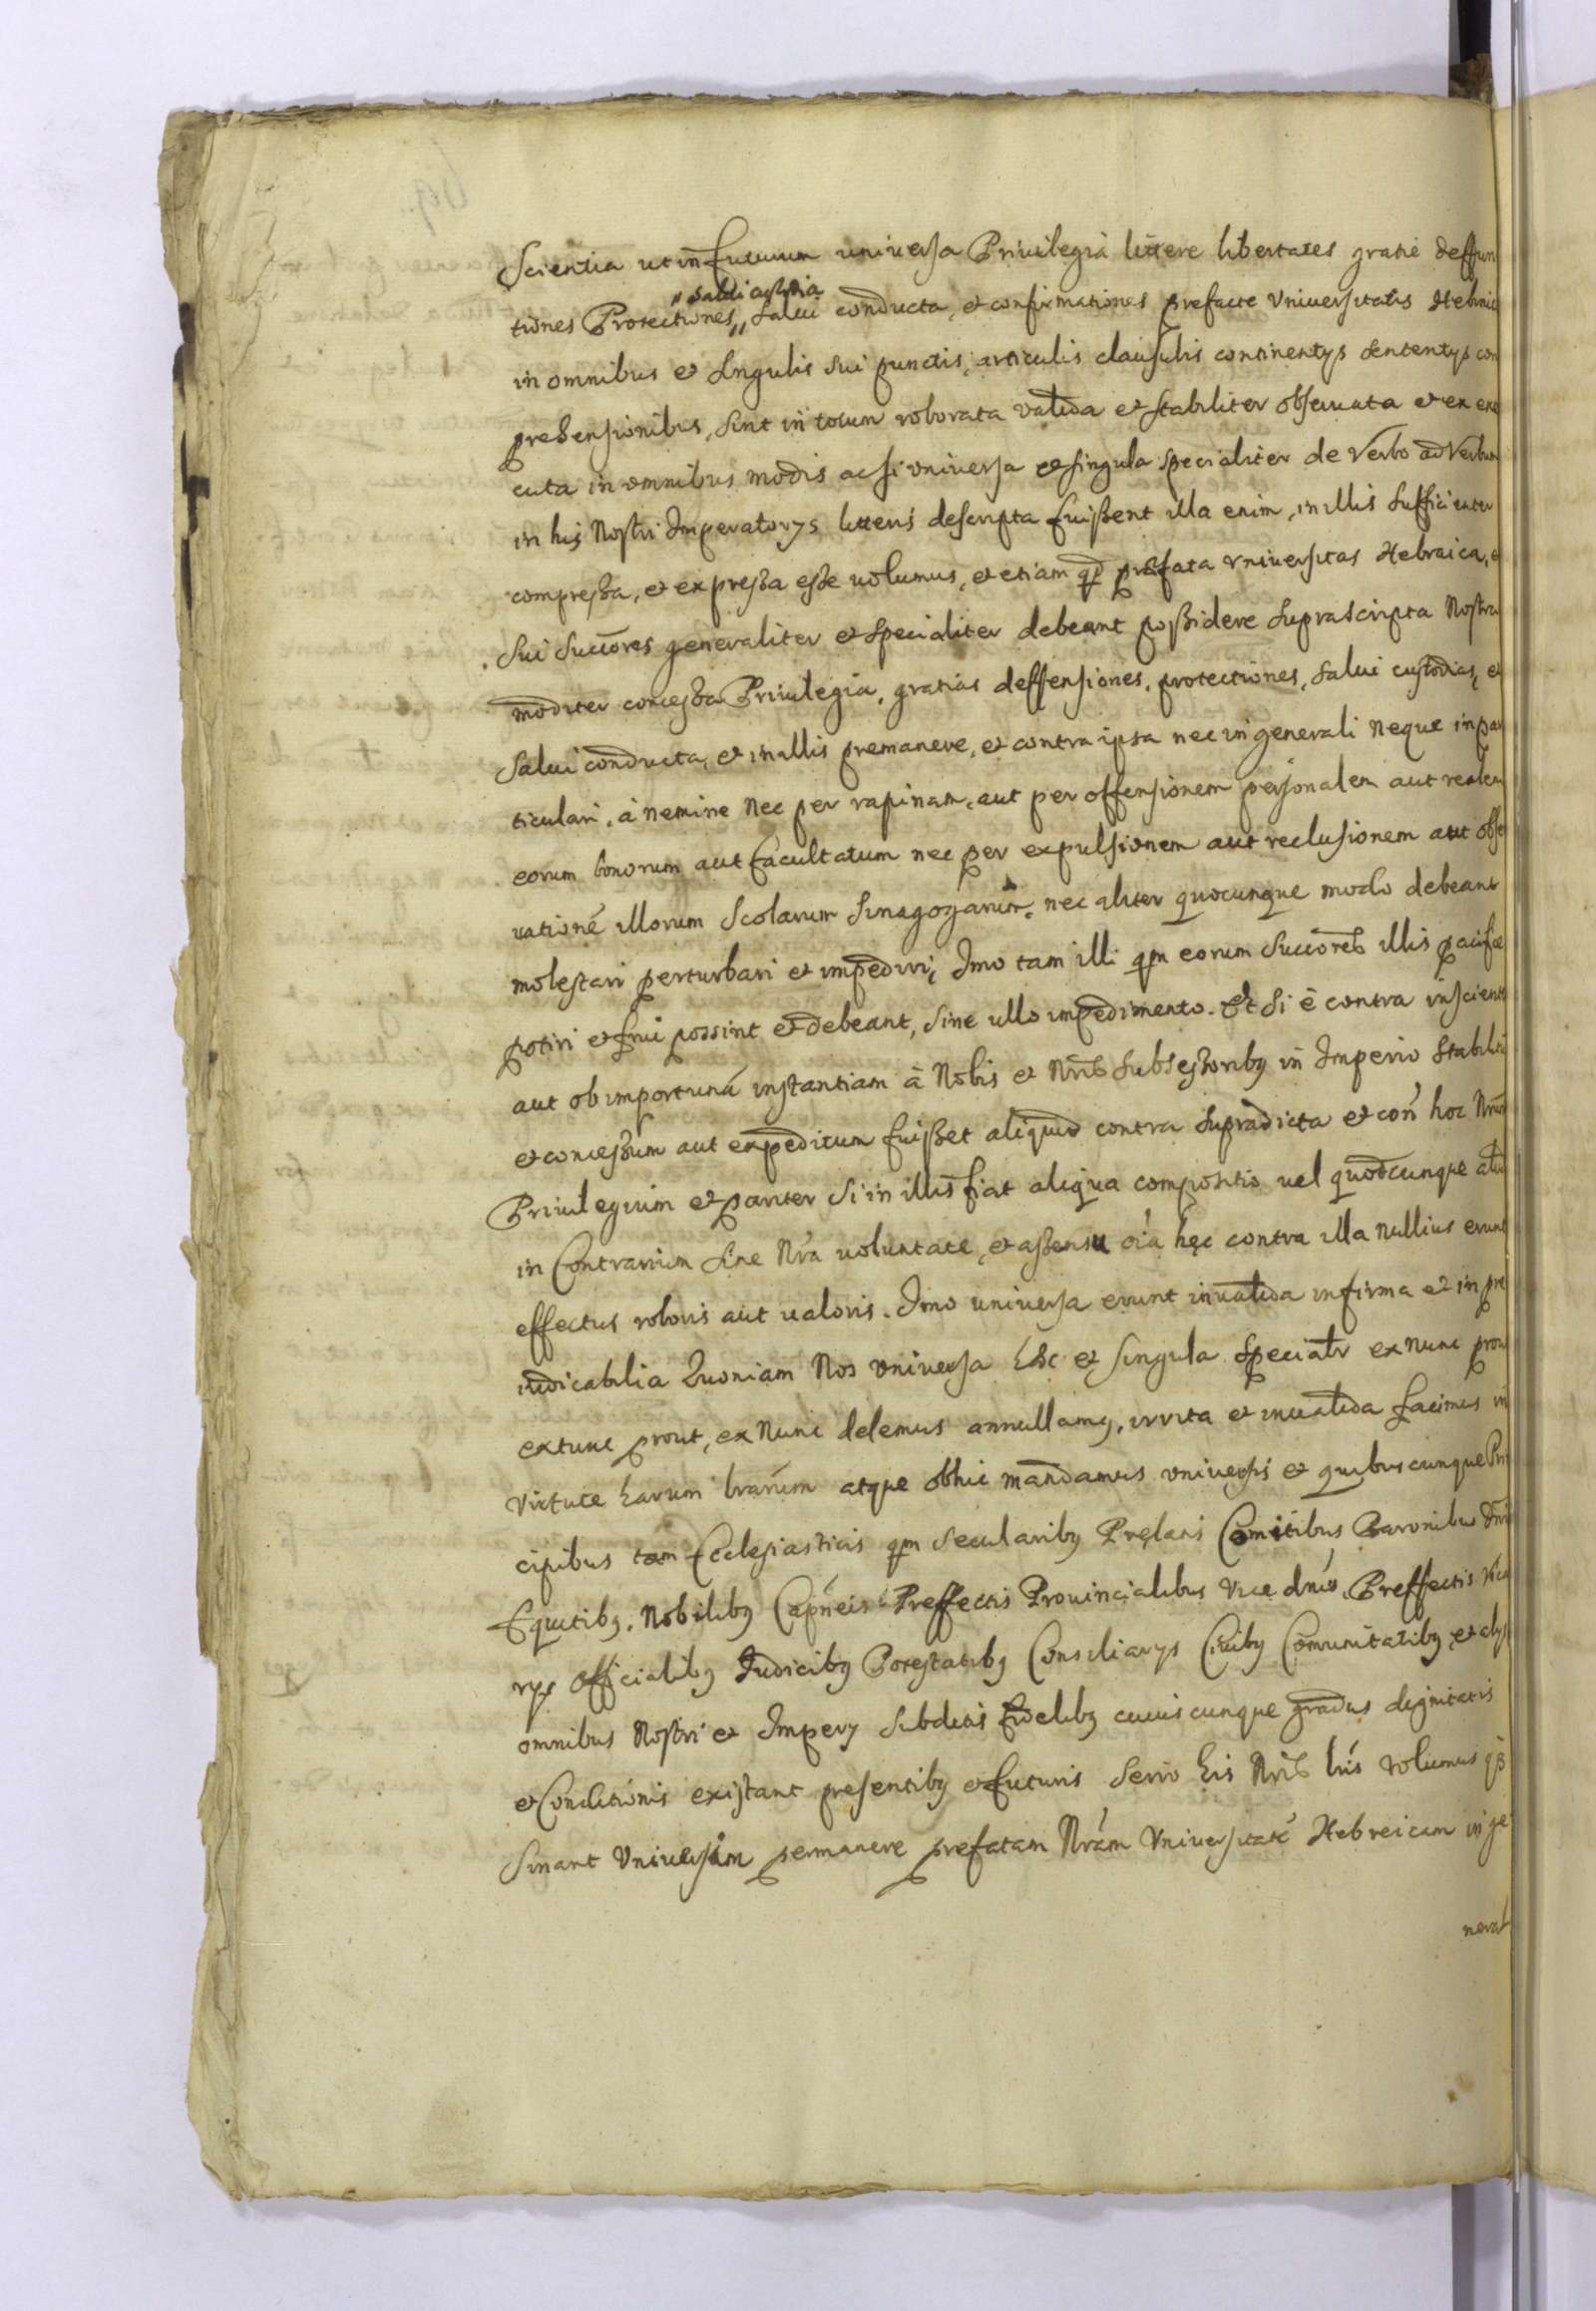 Scientia ut in futurum universa Privilegia littere libertates gratie deffen
" salvi custodia
tiones Protectiones " salvi conducta, et confirmationes prefacte Vniversitatis Hebraic
in omnibus et singulis sui punctis, articulis clausulis continentÿs sententÿs con
prehensionibus, sint in totum roborata valida et stabiliter observata et ex exe
cuta in omnibus modis ac si vniversa et singula specialiter de Verbo ad Verbum
in his Nostri Imperatorÿs litteris descripta fuissent illa enim, in illis sufficienter
compressa, et expressa esse volumus, et etiam qd prefata Vniversitas Hebraica, e
sui Succores generaliter et specialiter debeant possidere suprascripta Nostra
moditer concessa Privilegia, gratias deffensiones, protectiones, salvi custodias, et
salvi conducta, et in illis premanere, et contra ipsa nec in generali neque in par
ticulari, à nemine nec per rapinam, aut per offensionem personalem aut realem
eorum bonorum aut facultatum nec per expulsionem aut reclusionem aut obse
vationé illorum Scolarum Sinagogarum, nec aliter quocunque modo debeant
molestari perturbari et impediri, Imo tam illi qm eorum Succores illis pacifce
potiri et frui possint et debeant, sine ullo impedimento. Et si è contra inscient
aut ob importuná instantiam à Nobis et Nris subsessoribȝ in Imperio stabiliti
et concessum aut expeditum fuisset aliquid contra supradicta et con hoc Nrum
Privilegium et pariter si in illis fiat aliqua compositio vel quodcunque aliu
in Contrarium sine Nra voluntate, et assensu oia hęc contra illa nullius erunt
effectus roboris aut valoris. Imo universa erunt invalida infirma et in pre
iudicabilia Quoniam Nos vniversa hec et singula specialr ex nunc prout
extunc prout, ex nunc delemus annullamȝ, irrita et invalida facimus in
virtute harum lrarum atque obhic mandamus vniversis et quibuscunque Prin
cipibus tam Ecclesiasticis qm secularibȝ Pręlatis Comitibus Baronibus dnis
Equitibȝ, Nobilibȝ Capneis Preffectis Provincialibus Vice dnis, Preffectis Vica
rÿs officialibȝ Iudicibȝ Potestatibȝ Consiliarÿs Civibȝ Comunitatibȝ, et alÿs
omnibus Nostri et Imperÿ subditis fidelibȝ cuiuscunque gradus dignitatis
et Conditionis existant presentibȝ et futuris serio his Nris lris volumus qd
sinant Vniversim permanere prefatam Nram Vniversitaté Hebreicam in ge
neral